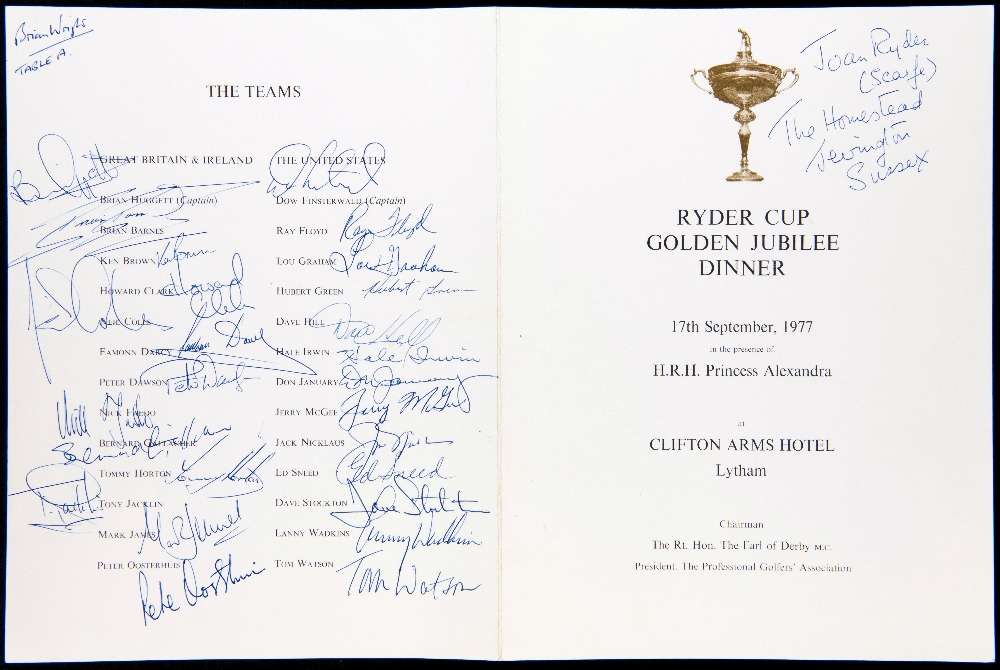 Brian Wright
TABLE A.
THE TEAMS
GREAT BRITAIN & IRELAND
BRIAN HUGGETT (Captain)
BRIAN BARNES
KEN BROWN
HOWARD CLARK
NEIL COLES
EAMONN DARCY
PETER DAWSON
NICK FALDO
BERNARD GALLACHER
TOMMY HORTON
TONY JACKLIN
MARK JAMES
PETER OOSTERHUIS
Ken Brown
Howard
Clark
Eamonn Darcy
Peter Dawson
Nick Faldo
Bernard Gallacher
Tommy Horton
T. Jacklin
Mark James
Pete Oosterhuis
THE UNITED STATES
DOW FINSTERWALD (Captain)
RAY FLOYD
LOU GRAHAM
HUBERT GREEN
DAVE HILL
HALE IRWIN
DON JANUARY
JERRY McGEE
JACK NICKLAUS
ED SNEED
DAVE STOCKTON
LANNY WADKINS
TOM WATSON
Ray Floyd
Lou Graham
Hubert Green
Dave Hill
Hale Irwin
Don January
Jerry McGee
Jack Nicklaus
Ed Sneed
Dave Stockton
Lanny Wadkins
Tom Watson
Joan Ryder
(Scarfe)
The Homestead
Jevington
Sussex
RYDER CUP
GOLDEN JUBILEE
DINNER
17th September, 1977
in the presence of
H.R.H. Princess Alexandra
at
CLIFTON ARMS HOTEL
Lytham
Chairman
The Rt. Hon. The Earl of Derby M.C.
President. The Professional Golfers' Association